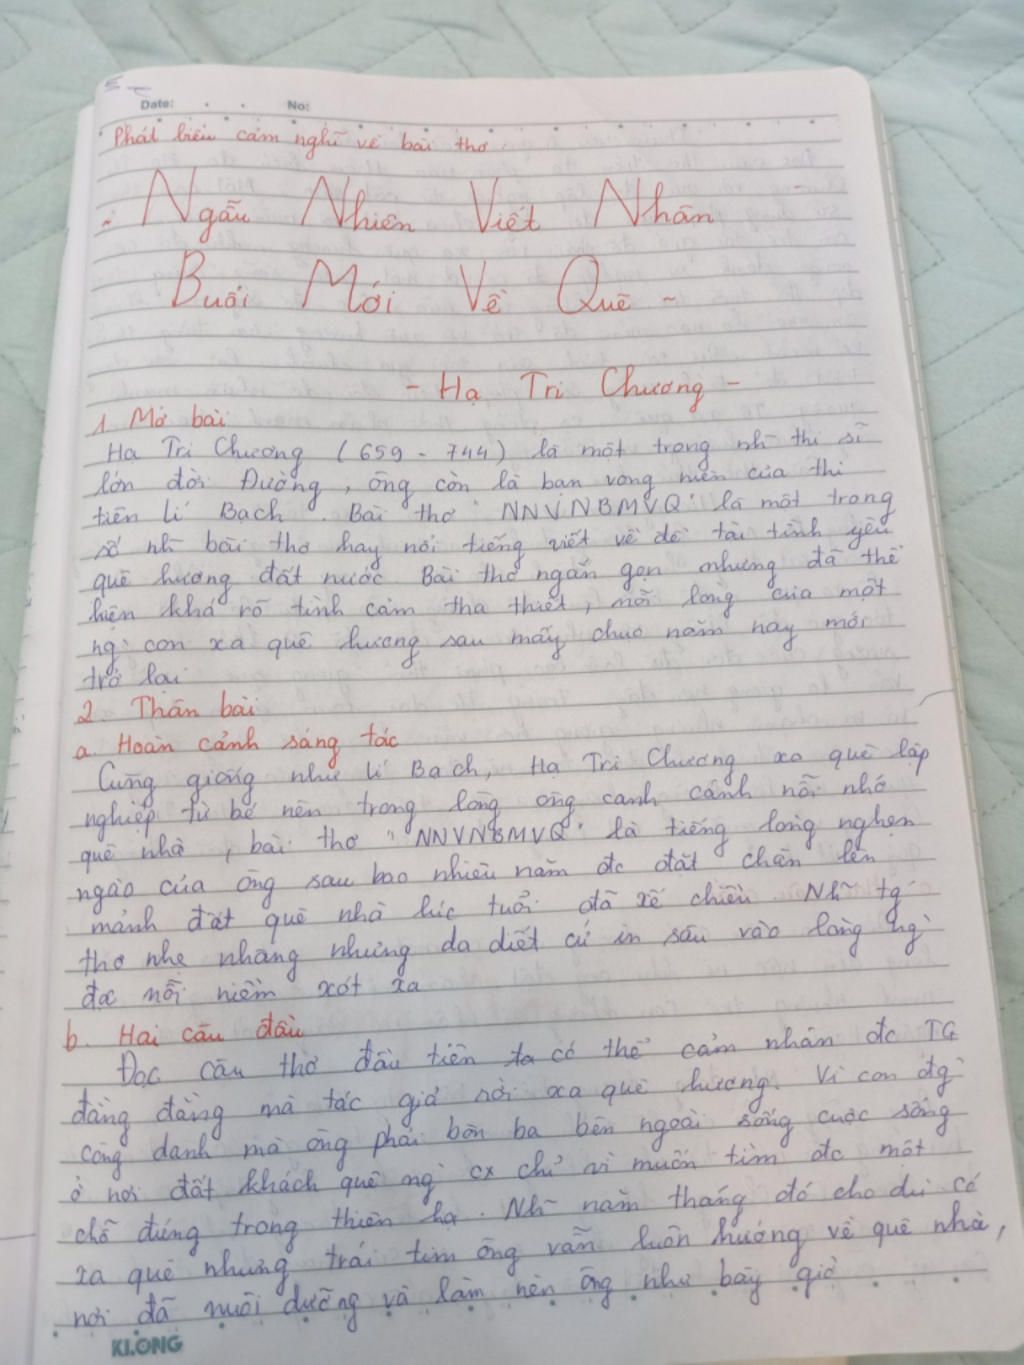 Date: No:
Phát biểu cảm nghĩ về bài thơ
~ Ngẫu Nhiên Viết Nhân
Buổi Mới Về Quê ~
- Hạ Tri Chương -
1. Mở bài
Hạ Tri Chương (659 - 744) là một trong nh~ thi sĩ
lớn đời Đường, ông còn là bạn vong niên của thi
tiên Lí Bạch. Bài thơ "NNVNBMVQ" là một trong
số nh~ bài thơ hay nổi tiếng viết về đề tài tình yêu
quê hương đất nước. Bài thơ ngắn gọn nhưng đã thể
hiện khá rõ tình cảm tha thiết, nỗi lòng của một
ng` con xa quê hương sau mấy chục năm nay mới
trở lại
2. Thân bài
a. Hoàn cảnh sáng tác
Cũng giống như Lí Bạch, Hạ Tri Chương xa quê lập
nghiệp từ bé nên trong lòng ông canh cánh nỗi nhớ
quê nhà, bài thơ "NNVNBMVQ" là tiếng lòng nghẹn
ngào của ông sau bao nhiêu năm đc đặt chân lên
mảnh đất quê nhà lúc tuổi đã xế chiều. Nh~ tg
thơ nhẹ nhàng nhưng da diết cứ in sâu vào lòng ng`
đọc nỗi niềm xót xa
b. Hai câu đầu
Đọc câu thơ đầu tiên ta có thể cảm nhận đc TG
đằng đẵng mà tác giả rời xa quê hương. Vì con đg`
công danh mà ông phải bôn ba bên ngoài sống cuộc sống
ở nơi đất khách quê ng` cx chỉ vì muốn tìm đc một
chỗ đứng trong thiên hạ. Nh~ năm tháng đó cho dù có
xa quê nhưng trái tim ông vẫn luôn hướng về quê nhà,
nơi đã nuôi dưỡng và làm nên ông như bây giờ
KLONG